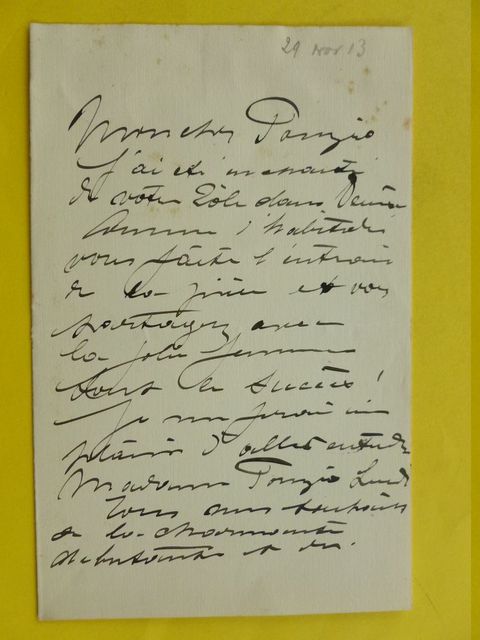 29 Nov. 13
Mon cher Ponzio
J'ai été enchanté
de votre rôle dans Vénise
Comme d'habitude
vous faîtes l'entrain
de la pièce et vous
partagez avec
la jolie femme
tout le succès !
Je me ferai un
plaisir d'aller entendre
Madame Ponzio Lundi
Tous mes
de la charmante
débutante et